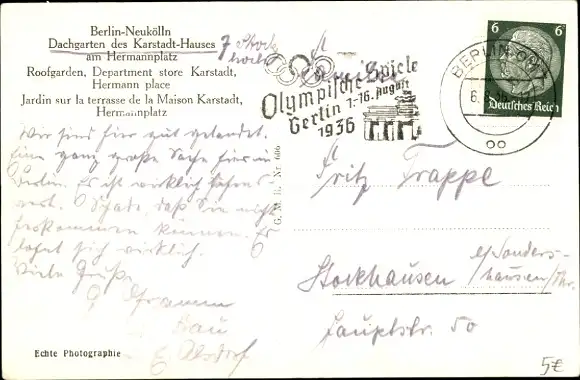 Berlin-Neukölln
Dachgarten des Karstadt-Hauses
am Hermannplatz
Roofgarden, Department store Karstadt,
Hermann place
Jardin sur la terrasse de la Maison Karstadt,
Hermannplatz
7
Olympische Spiele
Berlin 1.-16. August
1936
BERLIN
6
6
Deutsches Reich
Wir sind hier gut gelandet.
Eine ganz große Sache hier in
Berlin. Es ist wirklich sehens
wert. Schade, daß Sie nicht
können. Es
lohnt sich wirklich.
Viele Grüße
Fritz Trappe
Stockhausen
b/Sonders-
hausen/Thr.
Hauptstr. 50
Echte Photographie
5€